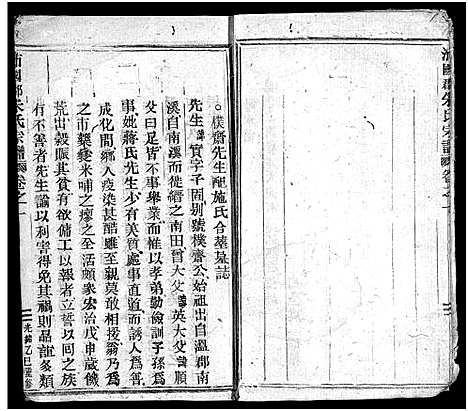 沛國郡朱氏宗譜卷之一
樸齋先生配施氏合葬墓誌
先生諱實字子固别號樸齋公始祖出自溫郡南
溪自南溪而徙縉之南田曾大父諱英大父諱順
父曰足皆不事舉業而惟以孝弟勤儉訓子孫爲
事妣蔣氏先生少有美質處事直道而誘人爲善
成化間鄉人染甚酷雖至親莫敢相援翁乃爲
之市藥煑米哺之瘳之全活頗衆宏治戊申歲饑
荒出榖賑其貧有欲傭工以報者立誓以回之族
有不善者先生諭以利害得免其禍則品龍多類
沛國郡朱氏宗譜卷之一
光緒乙巳重修